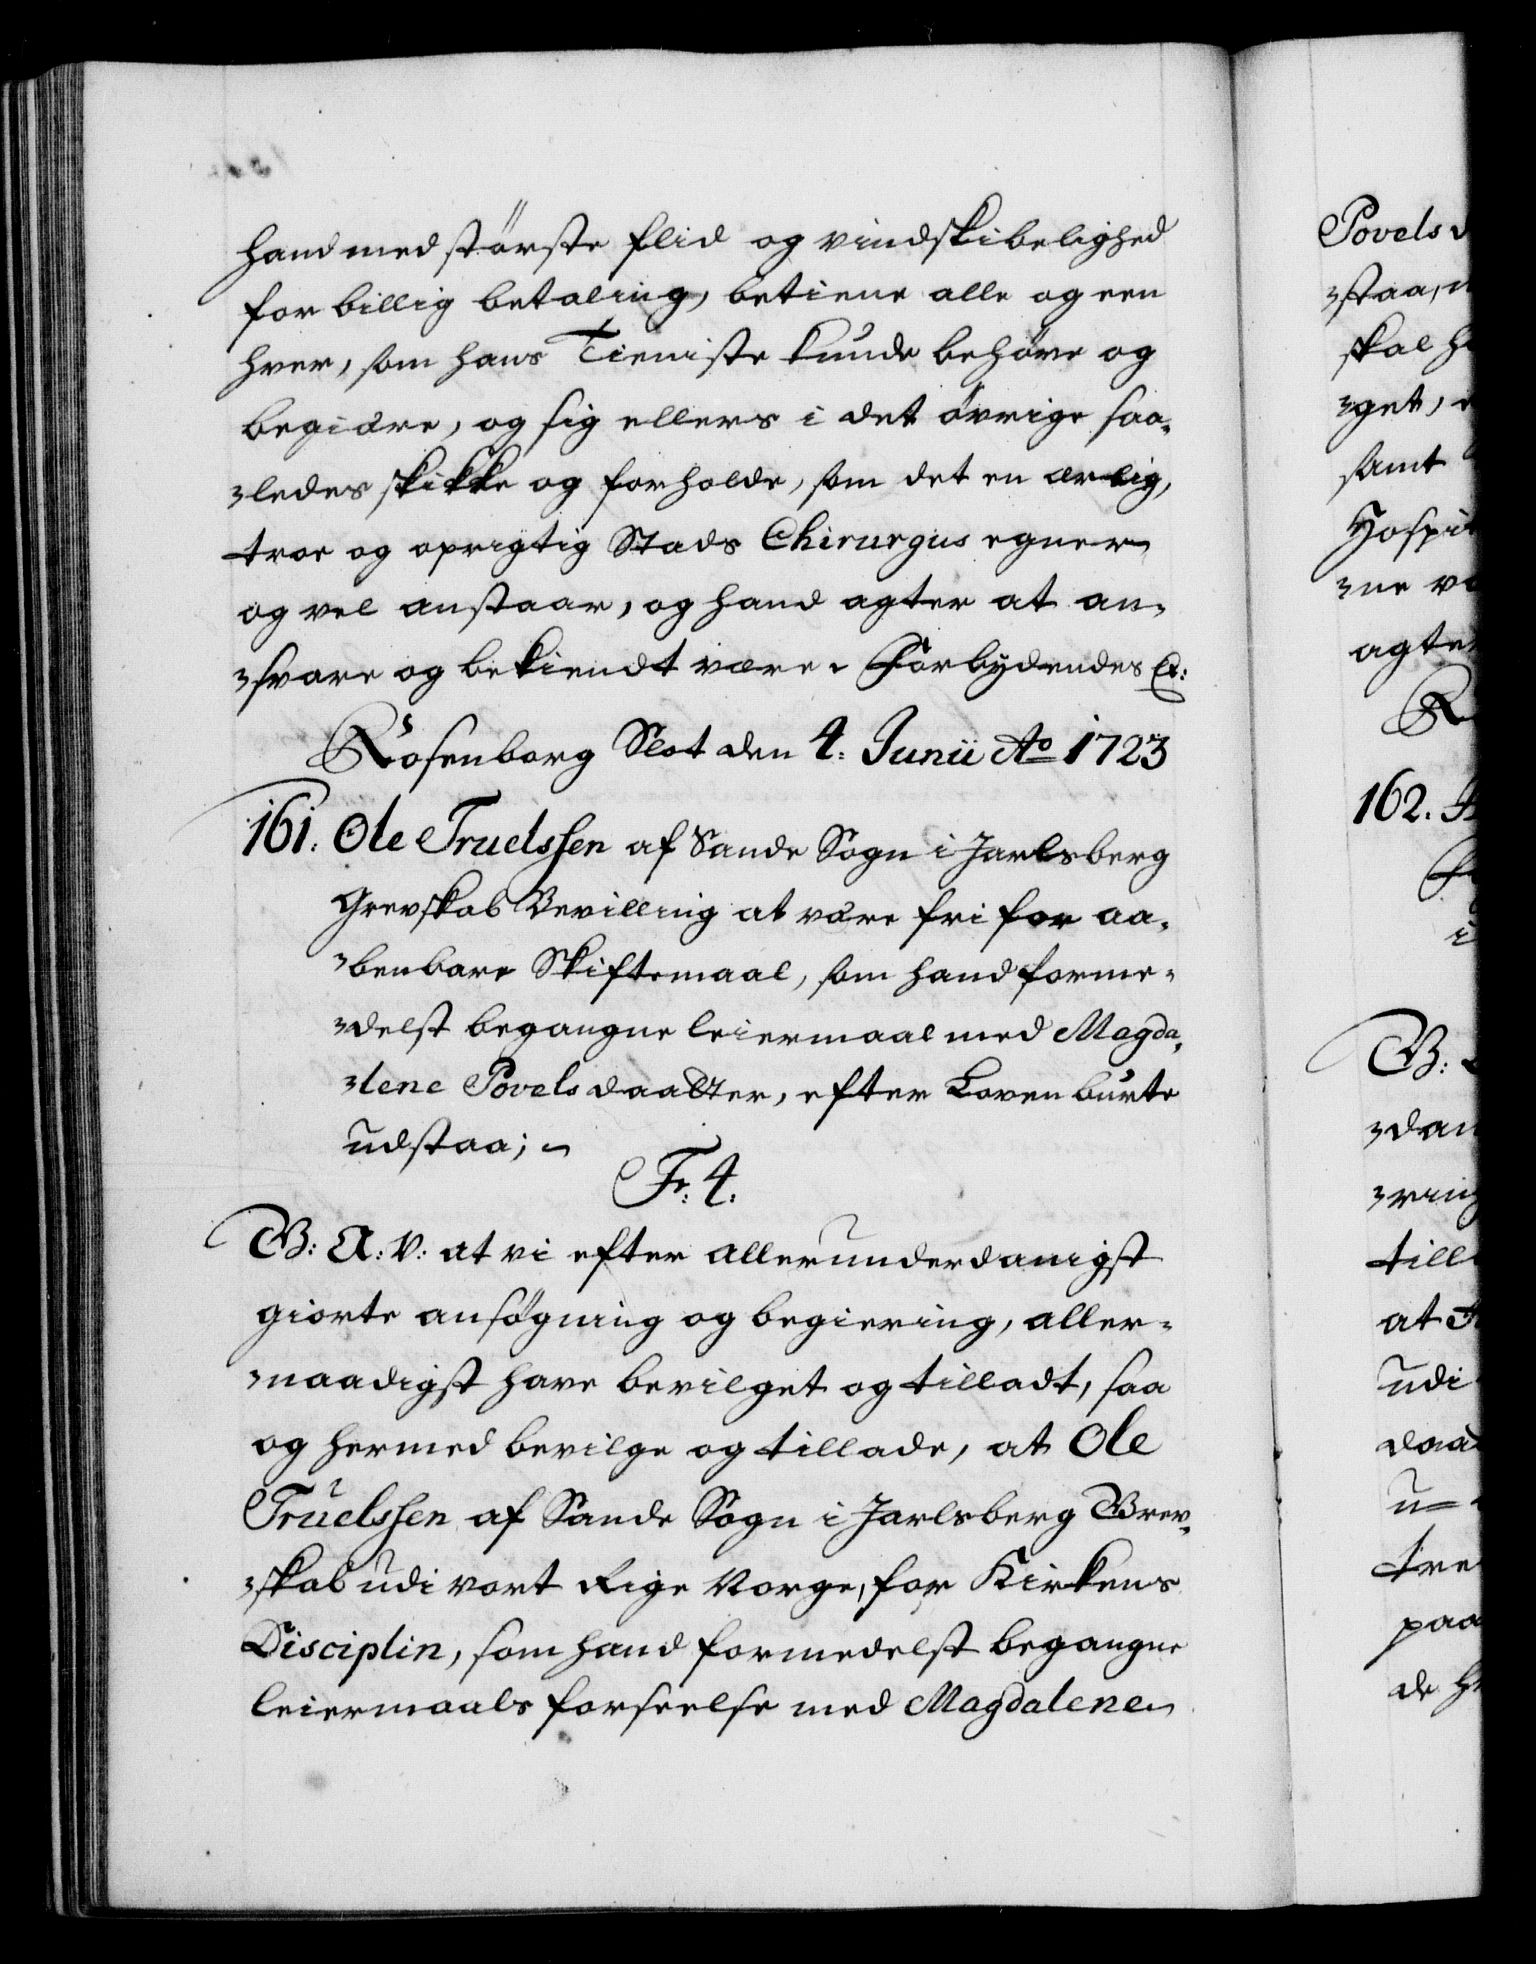 hand med störste flid og vindskibelighed
for billig betaling, betiene alle og een
hver, som hans Tieniste kunde behöve og
begiære, og sig ellers i det övrige saa-
-ledes skikke og forholde, som det en ærlig,
troe og oprigtig Stads Chirurgus egner
og vel anstaar, og hand agter at an-
-svare og bekiendt være. Forbydendes Ec:
Rosenborg Slot den 4: Junii Ao 1723
161. Ole Truelssen af Sande Sogn i Jarlsberg
Grevskab Bevilling at være fri for aa-
-benbare Skiftemaal, som hand forme-
-delst begangne leiermaal med Magda-
-lene Povels daatter, efter Loven burte
udstaa;
Fr. 4.
G: A: V: at vi efter allerunderdanigst
giorte ansögning og begiering, aller-
-naadigst have bevilget og tilladt, saa
og hermed bevilge og tillade, at Ole
Truelssen af Sande Sogn i Jarlsberg Grev-
-skab udi vort Rige Norge, for Kirkens
Disciplin, som hand formedelst begangne
leiermaals forseelse med Magdalene
Povels d
-staa,
skal h
-get,
samt
Hospit
-ne v
agter
R
162.
i
G:
-dan
-ring
till
at
udi
daat
u-
tre
paa
de h